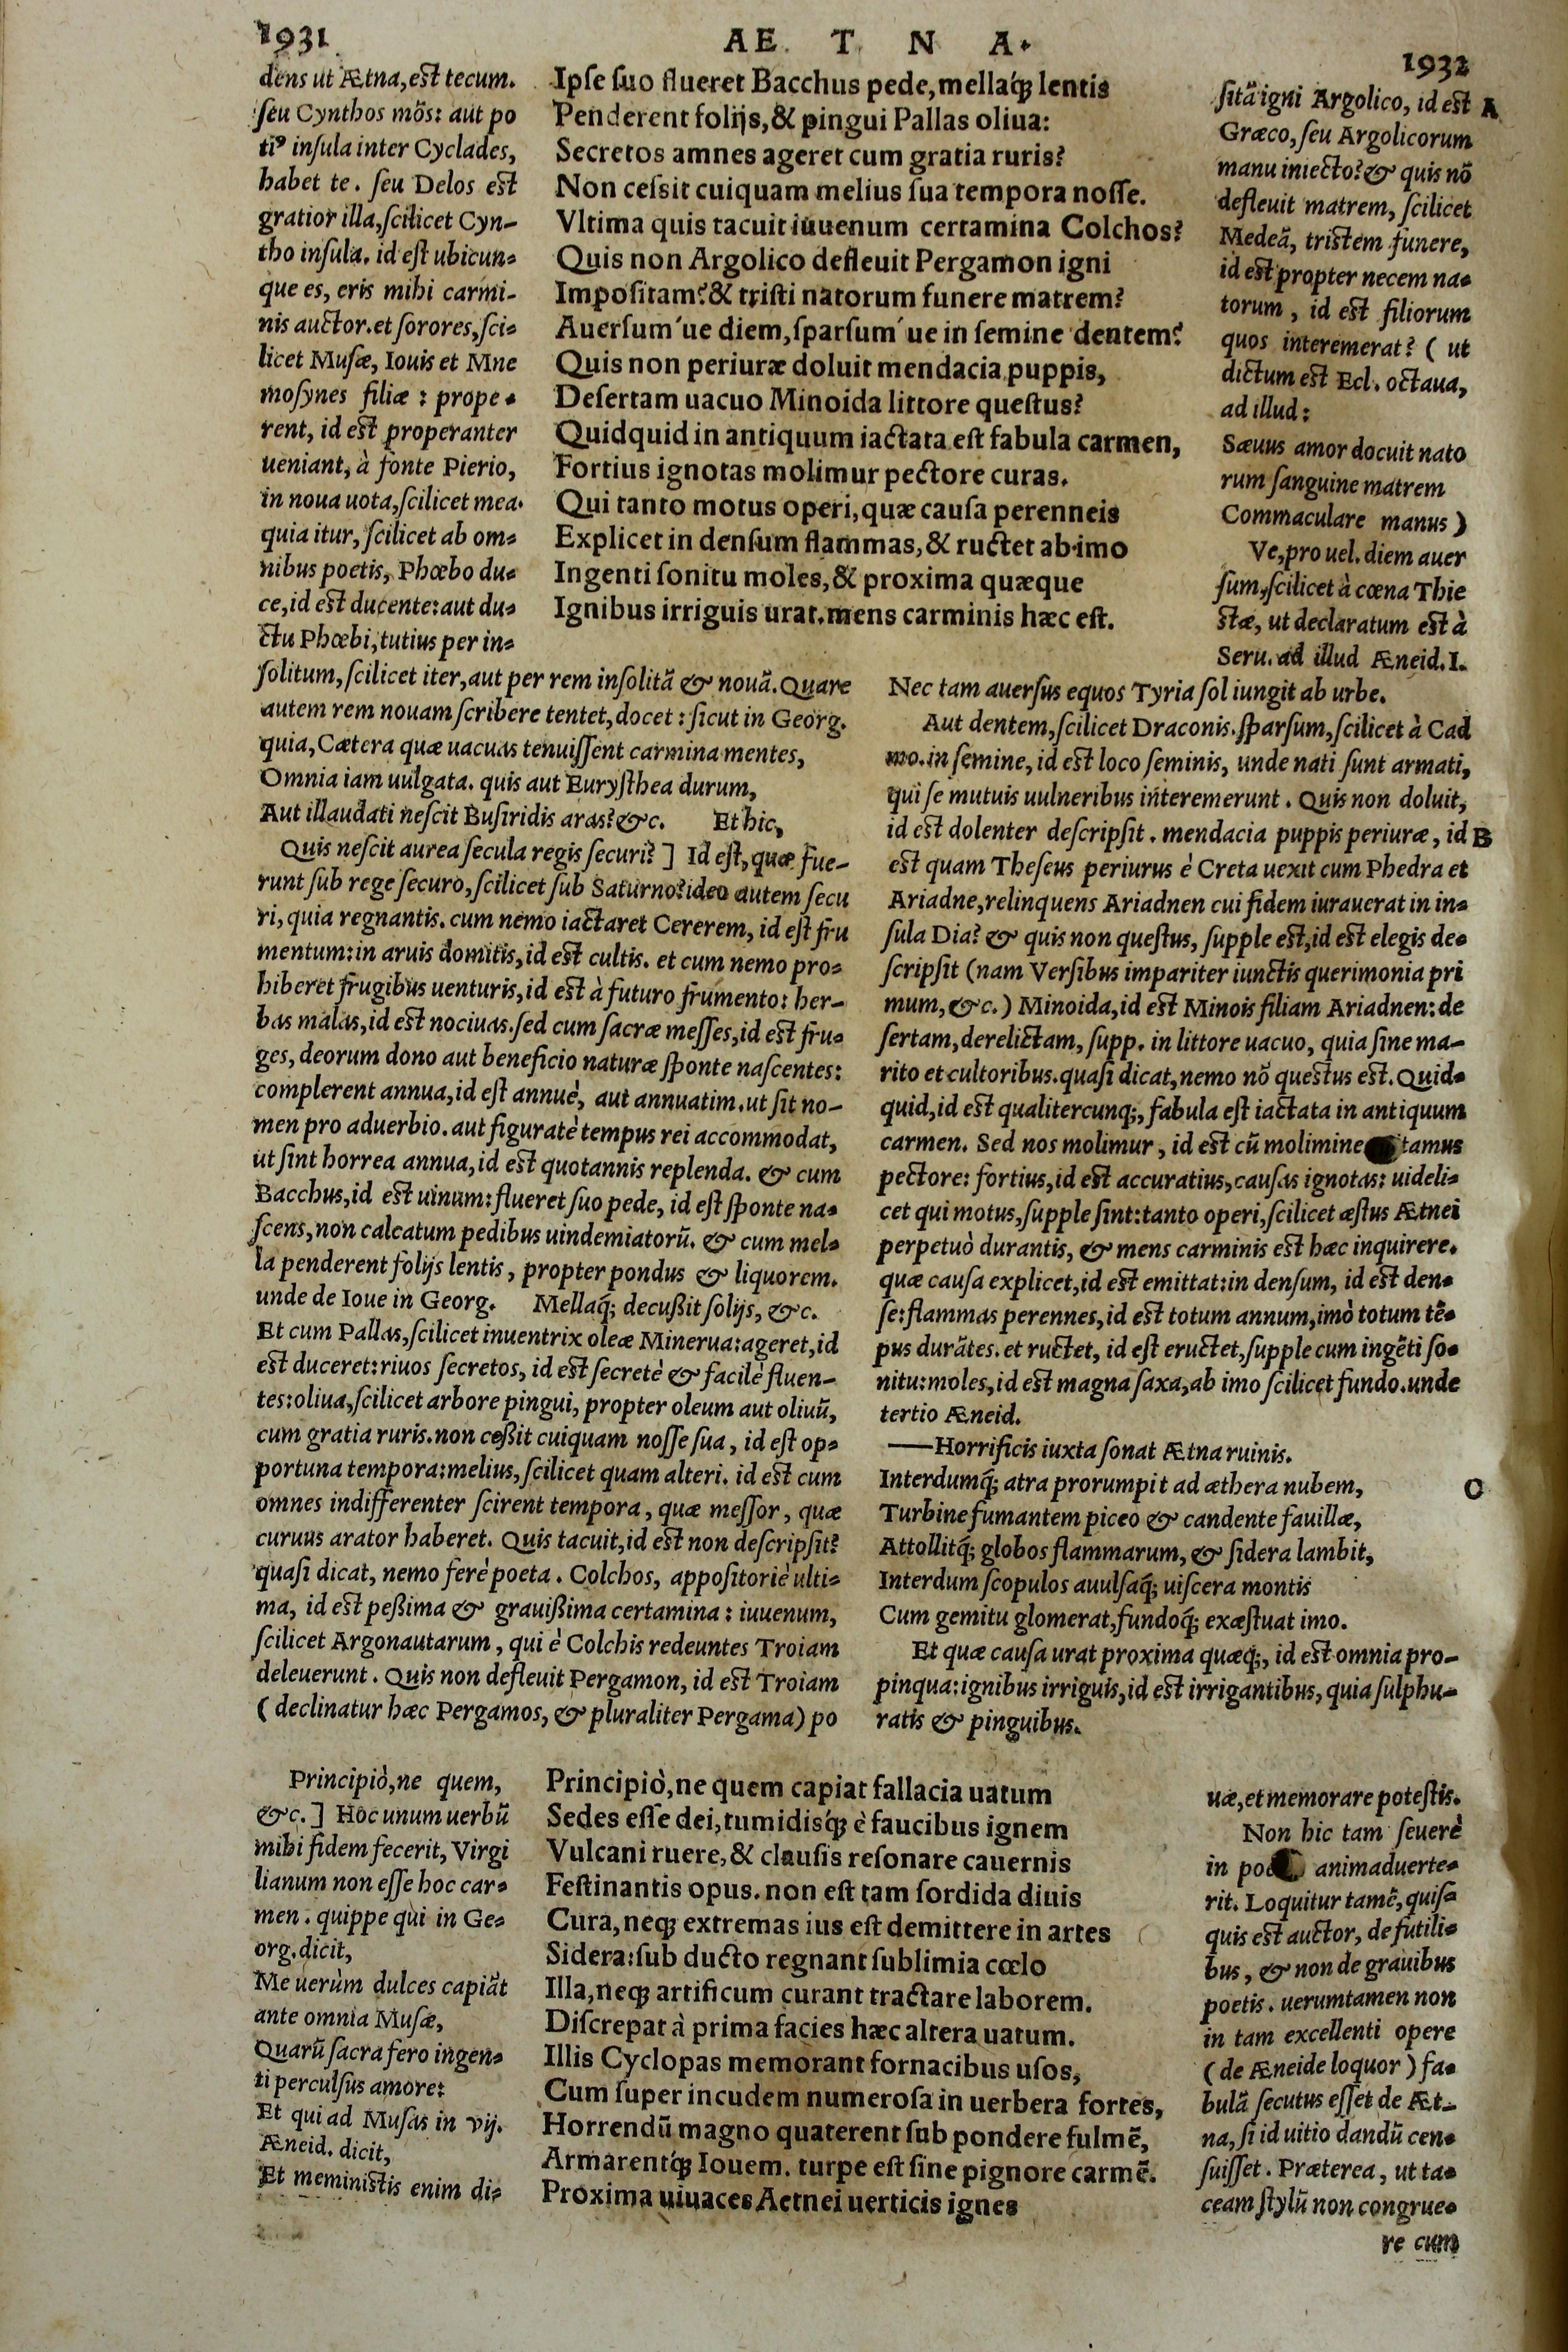 1931
AE T N A.
1932
dens ut Ætna, est tecum.
ſeu Cynthos mõs: aut po
tiꝰ inſula inter Cyclades,
habet te. ſeu Delos est
gratior illa, ſcilicet Cyn-
tho inſula. id eſt ubicun-
que es, eris mihi carmi-
nis auctor. et ſorores, ſci-
licet Muſæ, Iouis et Mne
moſynes filiæ: prope-
rent, id est properanter
ueniant, à fonte Pierio,
in noua uota, ſcilicet mea.
quia itur, ſcilicet ab om-
nibus poetis, Phœbo du-
ce, id est ducente: aut du-
ctu Phœbi, tutius per in-
ſolitum, ſcilicet iter, aut per rem inſolitã & nouã. Quare
autem rem nouam ſcribere tentet, docet: ſicut in Georg.
quia, Cætera quæ uacuas tenuiſſent carmina mentes,
Omnia iam uulgata. quis aut Euryſthea durum,
Aut illaudati neſcit Buſiridis aras? &c. Et hic,
Quis neſcit aurea ſecula regis ſecuri?] Id eſt, quæ fue-
runt ſub rege ſecuro, ſcilicet ſub Saturno? ideo autem ſecu
ri, quia regnantis. cum nemo iactaret Cererem, id eſt fru
mentum: in aruis domitis, id est cultis. et cum nemo pro-
hiberet frugibus uenturis, id est à futuro frumento: her-
bas malas, id est nociuas. ſed cum ſacræ meſſes, id est fru-
ges, deorum dono aut beneficio naturæ ſponte naſcentes:
complerent annua, id eſt annuè, aut annuatim. ut ſit no-
men pro aduerbio. aut figuratè tempus rei accommodat,
ut ſint horrea annua, id est quotannis replenda. & cum
Bacchus, id est uinum: flueret ſuo pede, id eſt ſponte na-
ſcens, non calcatum pedibus uindemiatorũ. & cum mel-
la penderent folijs lentis, propter pondus & liquorem.
unde de Ioue in Georg. Mellaq́; decußit folijs, &c.
Et cum Pallas, ſcilicet inuentrix oleæ Minerua: ageret, id
est duceret: riuos ſecretos, id est ſecretè & facilè fluen-
tes: oliua, ſcilicet arbore pingui, propter oleum aut oliuũ,
cum gratia ruris. non ceßit cuiquam noſſe ſua, id eſt op-
portuna tempora: melius, ſcilicet quam alteri. id est cum
omnes indifferenter ſcirent tempora, quæ meſſor, quæ
curuus arator haberet. Quis tacuit, id est non deſcripſit?
quaſi dicat, nemo ferè poeta. Colchos, appoſitoriè ulti-
ma, id est peßima & grauißima certamina: iuuenum,
ſcilicet Argonautarum, qui è Colchis redeuntes Troiam
deleuerunt. Quis non defleuit Pergamon, id est Troiam
(declinatur hæc Pergamos, & pluraliter Pergama) po
Ipſe ſuo flueret Bacchus pede, mellaq́; lentis
Penderent folijs, & pingui Pallas oliua:
Secretos amnes ageret cum gratia ruris?
Non ceſsit cuiquam melius ſua tempora noſſe.
Vltima quis tacuit iuuenum certamina Colchos?
Quis non Argolico defleuit Pergamon igni
Impoſitam? & triſti natorum funere matrem?
Auerſum´ue diem, ſparſum´ue in ſemine dentem?
Quis non periuræ doluit mendacia puppis,
Deſertam uacuo Minoida littore queſtus?
Quidquid in antiquum iactata eſt fabula carmen,
Fortius ignotas molimur pectore curas.
Qui tanto motus operi, quæ cauſa perenneis
Explicet in denſum flammas, & ructet ab imo
Ingenti ſonitu moles, & proxima quæque
Ignibus irriguis urat. mens carminis hæc eſt.
ſitã igni Argolico, id est A
Græco, ſeu Argolicorum
manu iniecto? & quis nõ
defleuit matrem, ſcilicet
Medeã, tristem funere,
id est propter necem na-
torum, id est filiorum
quos interemerat? (ut
dictum est Ecl. octaua,
ad illud:
Sæuus amor docuit nato
rum ſanguine matrem
Commaculare manus)
Ve, pro uel. diem auer
ſum, ſcilicet à cœna Thie
stæ, ut declaratum est à
Seru. ad illud Æneid. I.
Nec tam auerſus equos Tyria ſol iungit ab urbe.
Aut dentem, ſcilicet Draconis. ſparſum, ſcilicet à Cad
mo. in ſemine, id est loco ſeminis, unde nati ſunt armati,
qui ſe mutuis uulneribus interemerunt. Quis non doluit,
id est dolenter deſcripſit. mendacia puppis periuræ, id B
est quam Theſeus periurus è Creta uexit cum Phedra et
Ariadne, relinquens Ariadnen cui fidem iurauerat in in-
ſula Dia? & quis non queſtus, ſupple est, id est elegis de-
ſcripſit (nam Verſibus impariter iunctis querimonia pri
mum, &c.) Minoida, id est Minois filiam Ariadnen: de
ſertam, derelictam, ſupp. in littore uacuo, quia ſine ma-
rito et cultoribus. quaſi dicat, nemo nõ questus est. Quid-
quid, id est qualitercunq;, fabula eſt iactata in antiquum
carmen. Sed nos molimur, id est cũ molimine tamus
pectore: fortius, id est accuratius, cauſas ignotas: uideli-
cet qui motus, ſupple ſint: tanto operi, ſcilicet æſtus Ætnei
perpetuò durantis, & mens carminis est hæc inquirere.
quæ cauſa explicet, id est emittat: in denſum, id est den-
ſe: flammas perennes, id est totum annum, imò totum tẽ-
pus durãtes. et ructet, id eſt eructet, ſupple cum ingẽti ſo-
nitu: moles, id est magna ſaxa, ab imo ſcilicet fundo. unde
tertio Æneid.
—Horrificis iuxta ſonat Ætna ruinis.
Interdumq́; atra prorumpit ad æthera nubem, C
Turbine fumantem piceo & candente fauillæ,
Attollitq́; globos flammarum, & ſidera lambit,
Interdum ſcopulos auulſaq́; uiſcera montis
Cum gemitu glomerat, fundoq́; exæſtuat imo.
Et quæ cauſa urat proxima quæq;, id est omnia pro-
pinqua: ignibus irriguis, id est irrigantibus, quia ſulphu-
ratis & pinguibus.
Principiò, ne quem,
&c.] Hoc unum uerbũ
mihi fidem fecerit, Virgi
lianum non eſſe hoc car-
men. quippe qui in Ge-
org. dicit,
Me uerùm dulces capiãt
ante omnia Muſæ,
Quarũ ſacra fero ingen-
ti perculſus amore:
Et qui ad Muſas in vij.
Æneid. dicit,
Et meministis enim di-
Principiò, ne quem capiat fallacia uatum
Sedes eſſe dei, tumidisq́; è faucibus ignem
Vulcani ruere, & clauſis reſonare cauernis
Feſtinantis opus. non eſt tam ſordida diuis
Cura, neq; extremas ius eſt demittere in artes
Sidera: ſub ducto regnant ſublimia cœlo
Illa, neq; artificum curant tractare laborem.
Diſcrepat à prima facies hæc altera uatum.
Illis Cyclopas memorant fornacibus uſos,
Cum ſuper incudem numeroſa in uerbera fortes,
Horrendũ magno quaterent ſub pondere fulmẽ,
Armarentq́; Iouem. turpe eſt ſine pignore carmẽ.
Proxima uiuaces Aetnei uerticis ignes
uæ, et memorare poteſtis.
Non hic tam ſeuerè
in animaduerte-
rit. Loquitur tamẽ, quiſ-
quis est auctor, de futili-
bus, & non de grauibus
poetis. uerumtamen non
in tam excellenti opere
(de Æneide loquor) fa-
bulã ſecutus eſſet de Æt-
na, ſi id uitio dandũ cen-
ſuiſſet. Præterea, ut ta-
ceam ſtylũ non congrue-
re cum